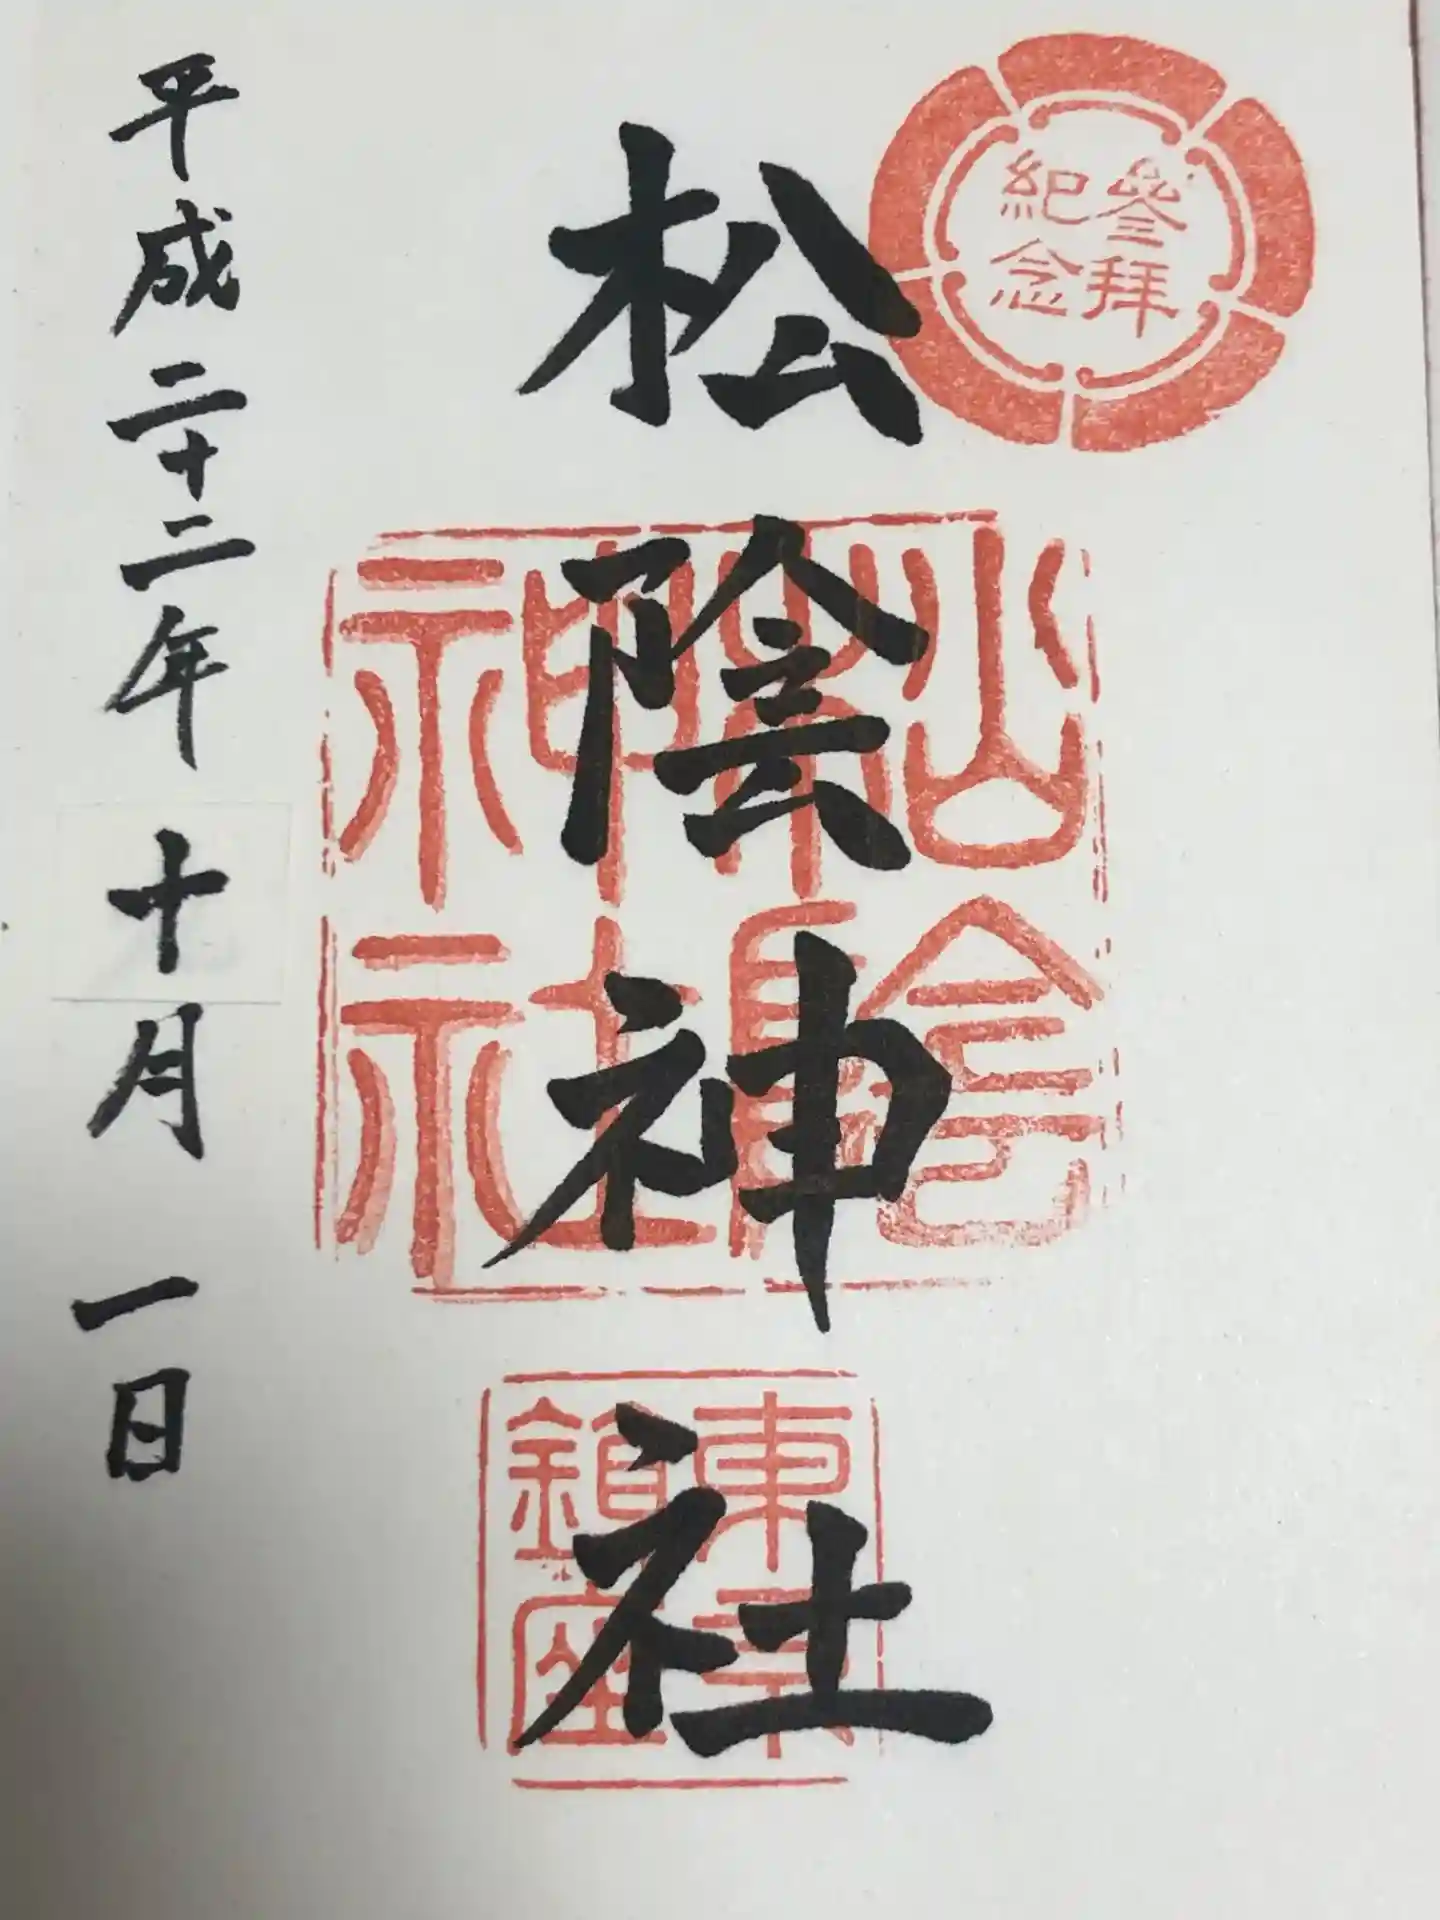 参拝
紀念
松陰神社
松陰
神社
東京
鎮座
平成二十二年十月一日